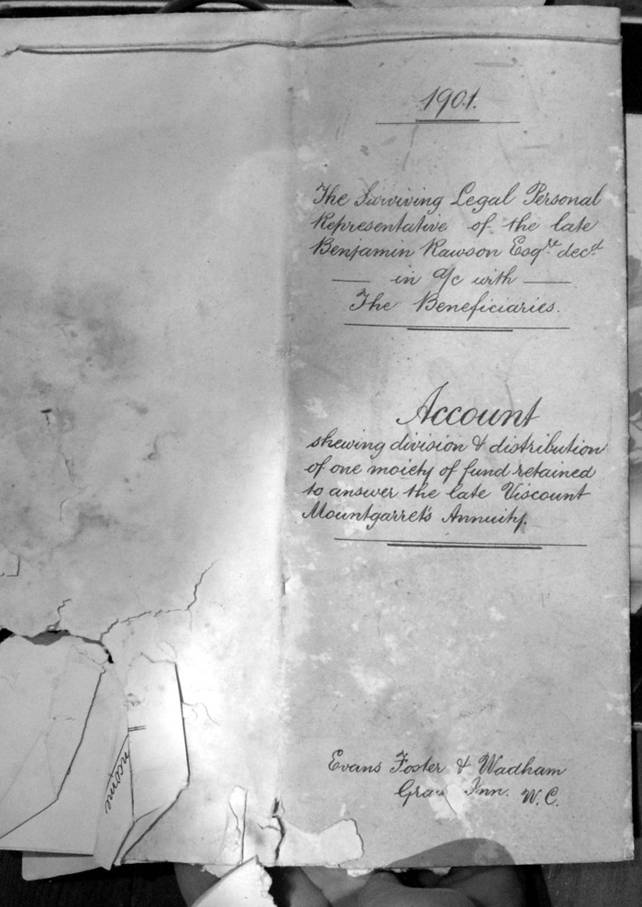 1901.
The Surviving Legal Personal
Representative of the late
Benjamin Rawson Esqre decd
in a/c with
The Beneficiaries.
Account
shewing division & distribution
of one moiety of fund retained
to answer the late Viscount
Mountgarret's Annuity.
Evans Foster & Wadham
Inn. W.C.